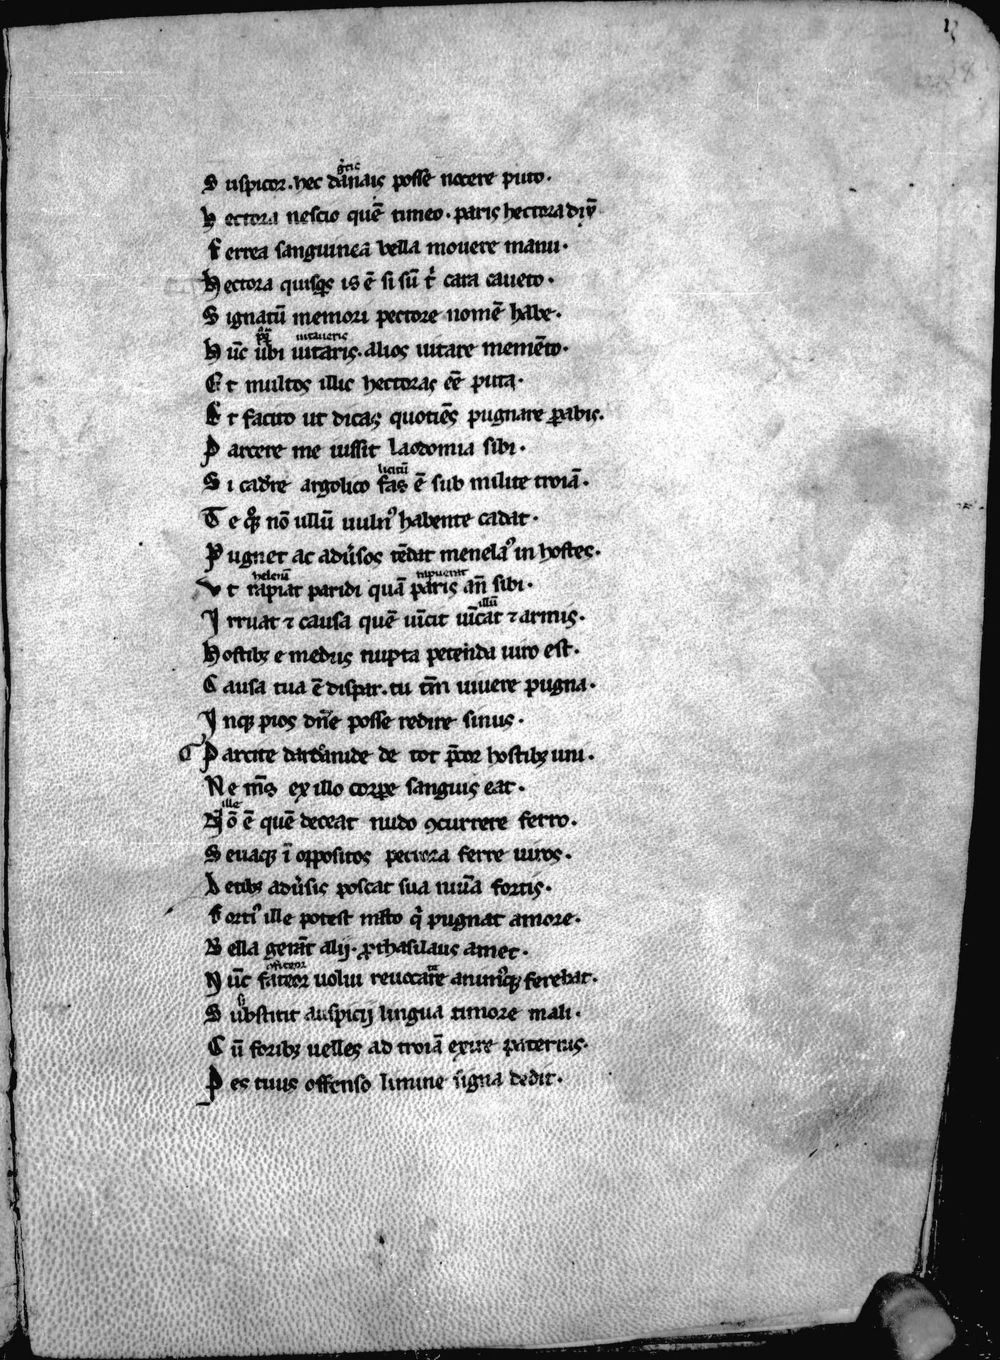 grecis
Suspicor. hec danais posse nocere puto.
Hectora nescio quē timeo. paris hectora dix̄
Ferrea sanguinea bella mouere manu.
Hectora quisqis is ē si sū tͥ cara caueto.
Signatū memori pectore nomē habe.
uitaueris
Hūc ubi uitaris. alios uitare memēto.
Et multos illic hectoras ēē puta.
Et facito ut dicas quotiēs pugnare ꝑabis.
Parcere me iussit laodomia sibi.
licitū
Si cadere argolico fas ē sub milite troiā.
Te qoꝙ nō ullū uulnꝰ habente cadat.
Pugnet ac adũsos tēdat menelaꝰ in hostes.
helenā rapuerat
Ut rapiat paridi quā paris an̄ sibi.
illū
Irruat ⁊ causa quē uīcit uīcat ⁊ armis.
Hostibꝫ e mediis nupta petenda uiro est.
Causa tua ē dispar. tu tm̄ uiuere pugna.
Inqꝫ pios dn̄e posse redire sinus.
Parcite dardanide de tot p̄cor hostibꝫ uni.
Ne ms̄ ex illo corꝑe sanguis eat.
ille
Nō ē quē deceat nudo ꝯcurrere ferro.
Seuaqꝫ ī oppositos pectora ferre uiros.
aduͥsis poscat sua fortis.
Fortiꝰ ille potest mͣlto qͥ pugnat amore.
Bella gerāt alij. ꝓthasilaus amet.
Nūc fateor uolui reuocare animꝰqꝫ ferebat.
Substitit auspicij lingua timore mali.
Cū foribꝫ uelles ad troiā exire paternis.
Pes tuus offenso limine signa dedit.